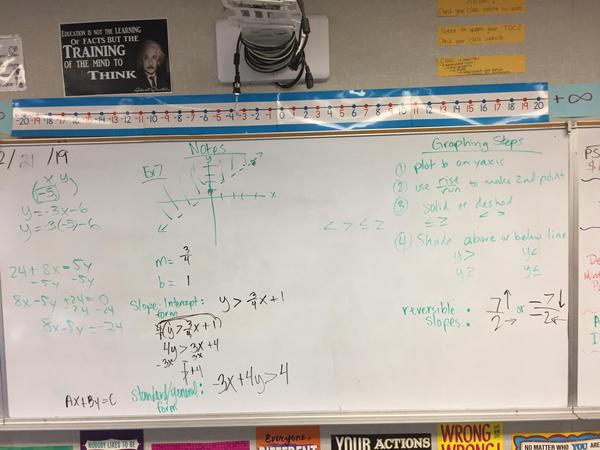 EDUCATION IS NOT THE LEARNING
OF FACTS BUT THE
TRAINING
OF THE MIND TO
THINK
Need to update your TOC?
Check your class website
-20 -19 -18 -17 -16 -15 -14 -13 -12 -11 -10 -9 -8 -7 -6 -5 -4 -3 -2 -1 0 1 2 3 4 5 6 7 8 9 10 11 12 13 14 15 16 17 18 19 20
+∞
2/21/19
x y
(-5)
y=-3x-6
y=-3(-5)-6
24+8x=5y
-5y -5y
8x-5y+24=0
-24 -24
8x-5y=-24
Ax+By=C
Notes
Ex7
y
x
m= 3/4
b= 1
Slope-Intercept: y > 3/4x+1
form
4(y>3/4x+1)
4y>3x+4
-3x -3x
+4
Standard/general: -3x+4y>4
form
< > ≤ ≥
Graphing Steps
① plot b on yaxis
② use rise/run to make 2nd point
③ solid or dashed
≤ ≥ < >
④ Shade above or below line
y> y<
y≥ y≤
reversible slopes: 7↑/2→ or -7↓/-2←
PS
NOBODY LIKES TO BE
Everyone
DIFFERENT
YOUR ACTIONS
WRONG
WRONG!
NO MATTER WHO YOU ARE